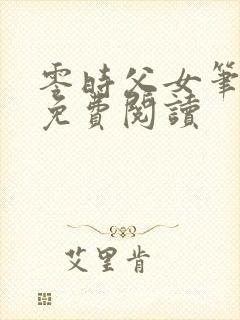 零時父女筆
免費閱讀
艾里肯